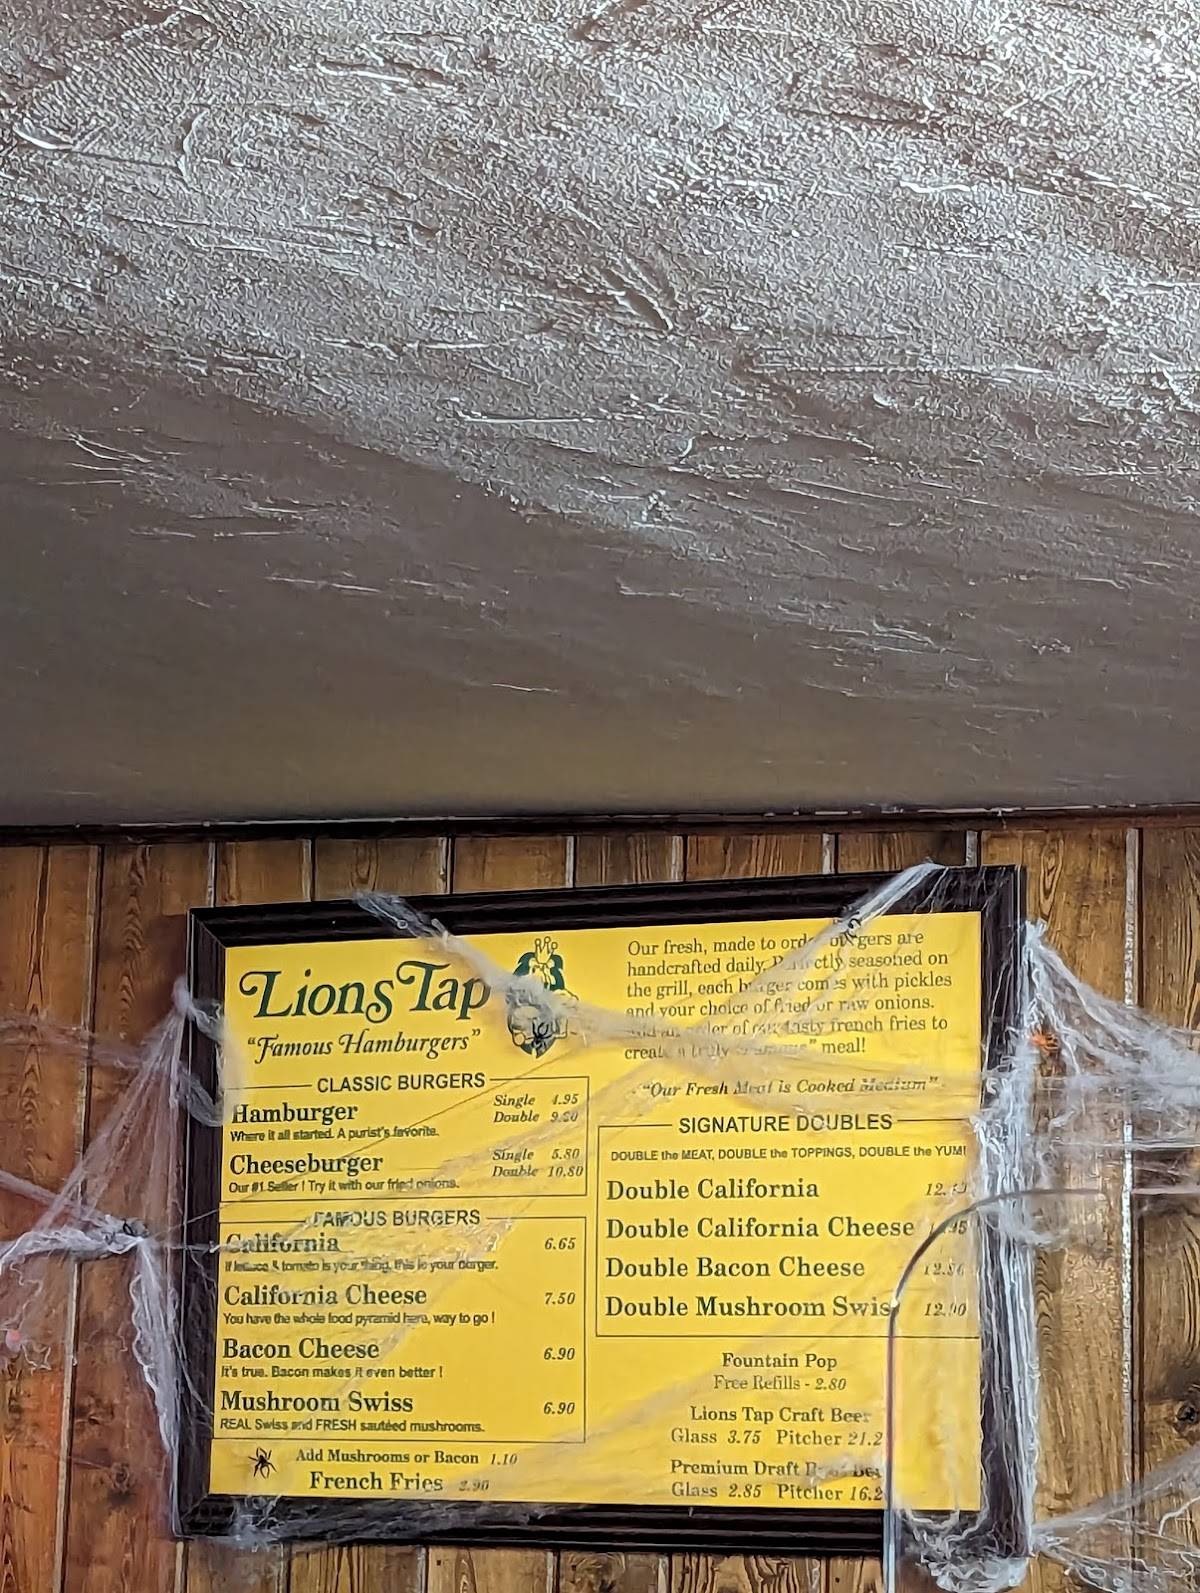 Lions Tap
"Famous Hamburgers"
CLASSIC BURGERS
Hamburger
Single 4.95
Double
Where it all started. A purist's favorite.
Cheeseburger
Single 5.80
Double 10.80
Our #1 Seller ! Try it with our fried onions.
FAMOUS BURGERS
California 6.65
If lettuce & tomato is your thing, this is your burger.
California Cheese 7.50
You have the whole food pyramid here, way to go !
Bacon Cheese 6.90
It's true. Bacon makes it even better !
Mushroom Swiss 6.90
REAL Swiss and FRESH sautéed mushrooms.
Add Mushrooms or Bacon 1.10
French Fries 2.90
Our fresh, made to order burgers are
handcrafted daily. Perfectly seasoned on
the grill, each burger comes with pickles
and your choice of fried or raw onions.
order of our tasty french fries to
create a truly meal!
"Our Fresh Meat is Cooked Medium"
SIGNATURE DOUBLES
DOUBLE the MEAT, DOUBLE the TOPPINGS, DOUBLE the YUM!
Double California
Double California Cheese
Double Bacon Cheese
Double Mushroom Swiss
Fountain Pop
Free Refills - 2.80
Lions Tap Craft Beer
Glass 3.75 Pitcher 21.2
Premium Draft
Glass 2.85 Pitcher 16.2